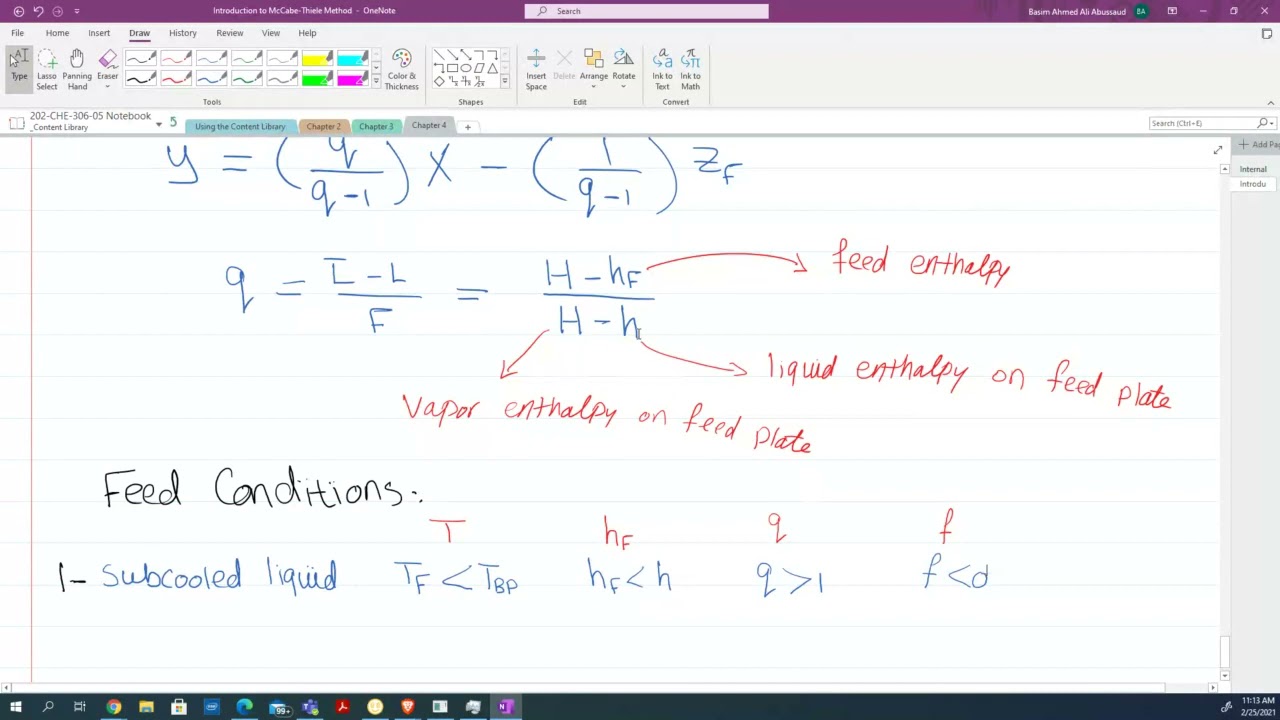 Introduction to McCabe-Thiele Method - OneNote
Search
Basim Ahmed Ali Abussaud BA
File Home Insert Draw History Review View Help
Type
Lasso Select
Panning Hand
Eraser
Color & Thickness
Insert Space
Delete
Arrange
Rotate
Ink to Text
Ink to Math
Tools Shapes Edit Convert
202-CHE-306-05 Notebook
_Content Library
5
Using the Content Library Chapter 2 Chapter 3 Chapter 4 +
Search (Ctrl+E)
Add Pag
Internal
Introdu
y = (q/(q-1)) x - (1/(q-1)) z_F
q = (L̅ - L)/F = (H - h_F)/(H - h)
feed enthalpy
liquid enthalpy on feed plate
Vapor enthalpy on feed plate
Feed Conditions:
T h_F q f
1- subcooled liquid T_F < T_BP h_F < h q > 1 f < 0
99+
11:13 AM
2/25/2021